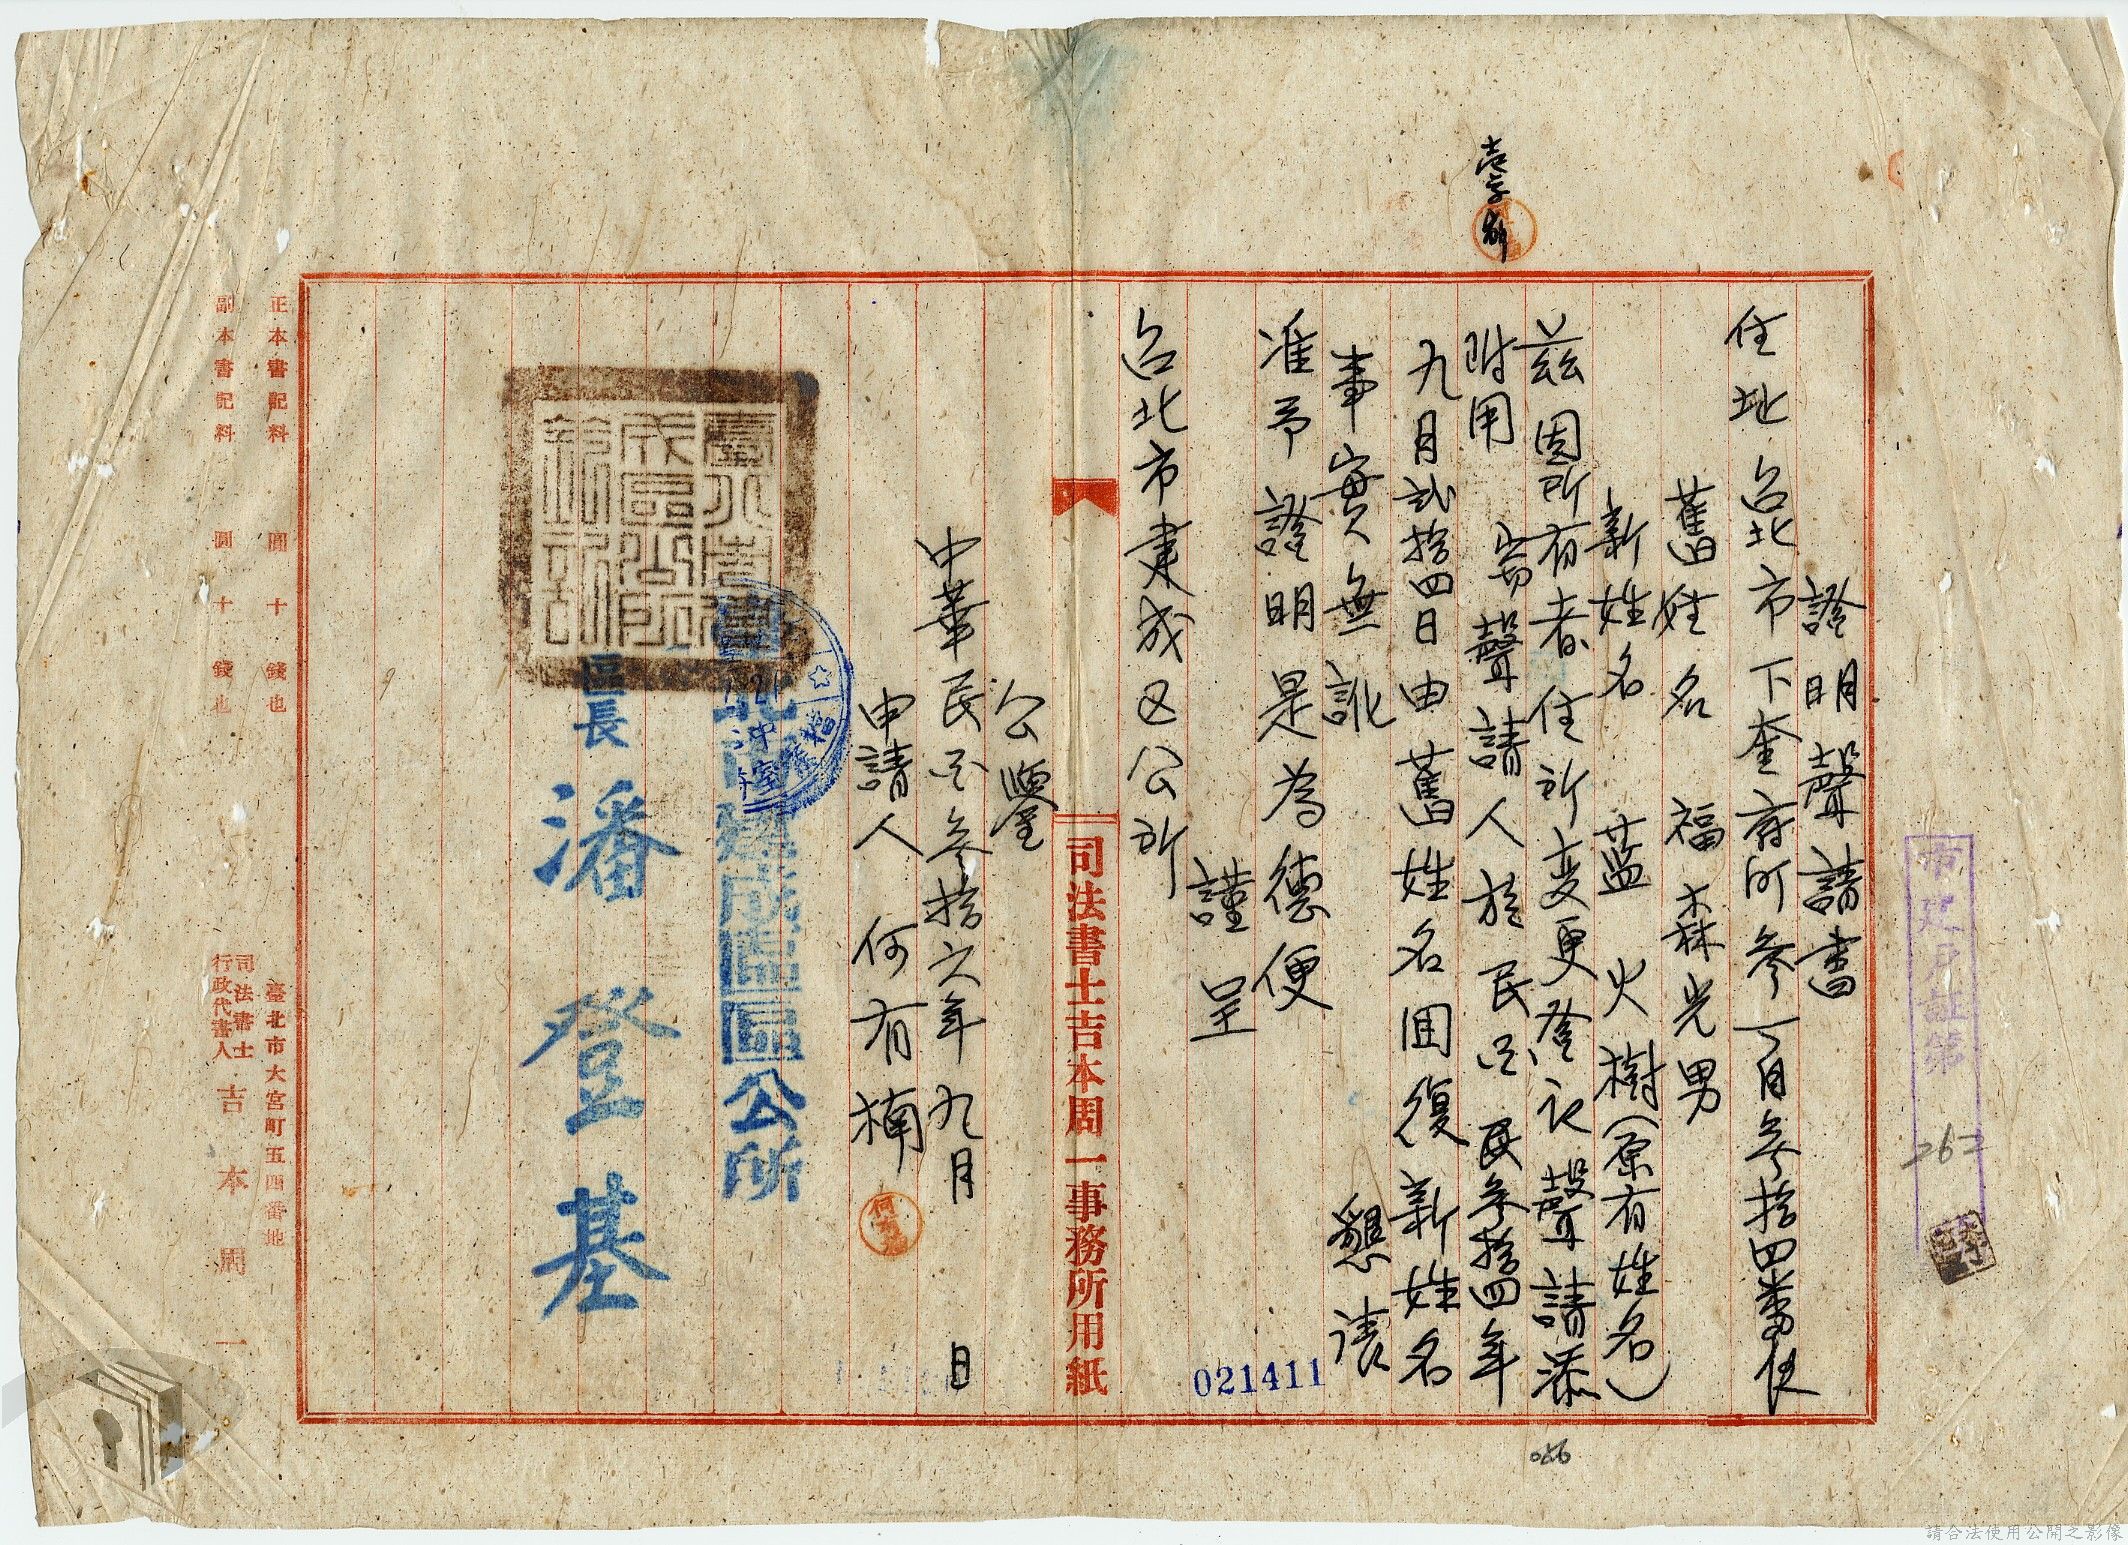 壹字刪
證明聲請書
住址 台北市下奎府町參丁目參拾四番地
舊姓名 福森光男
新姓名 藍火樹(原有姓名)
茲因所有者住所变更登記聲請添
附用 窃聲請人於民国 民參拾四年
九月弍拾四日由舊姓名回復新姓名
事實無訛 懇請
准予證明是為德便
謹呈
台北市建成区公所
公鑒
中華民国參拾六年九月 日
申請人 何有楠
臺北市建成區區公所
區長 潘登基
司法書士吉本周一事務所用紙
021411
市建戶証第
262
066
正本書記料 圓十錢也
副本書記料 圓十錢也
臺北市大宮町五四番地
司法書士
行政代書人 吉本周一
請合法使用公開之影像